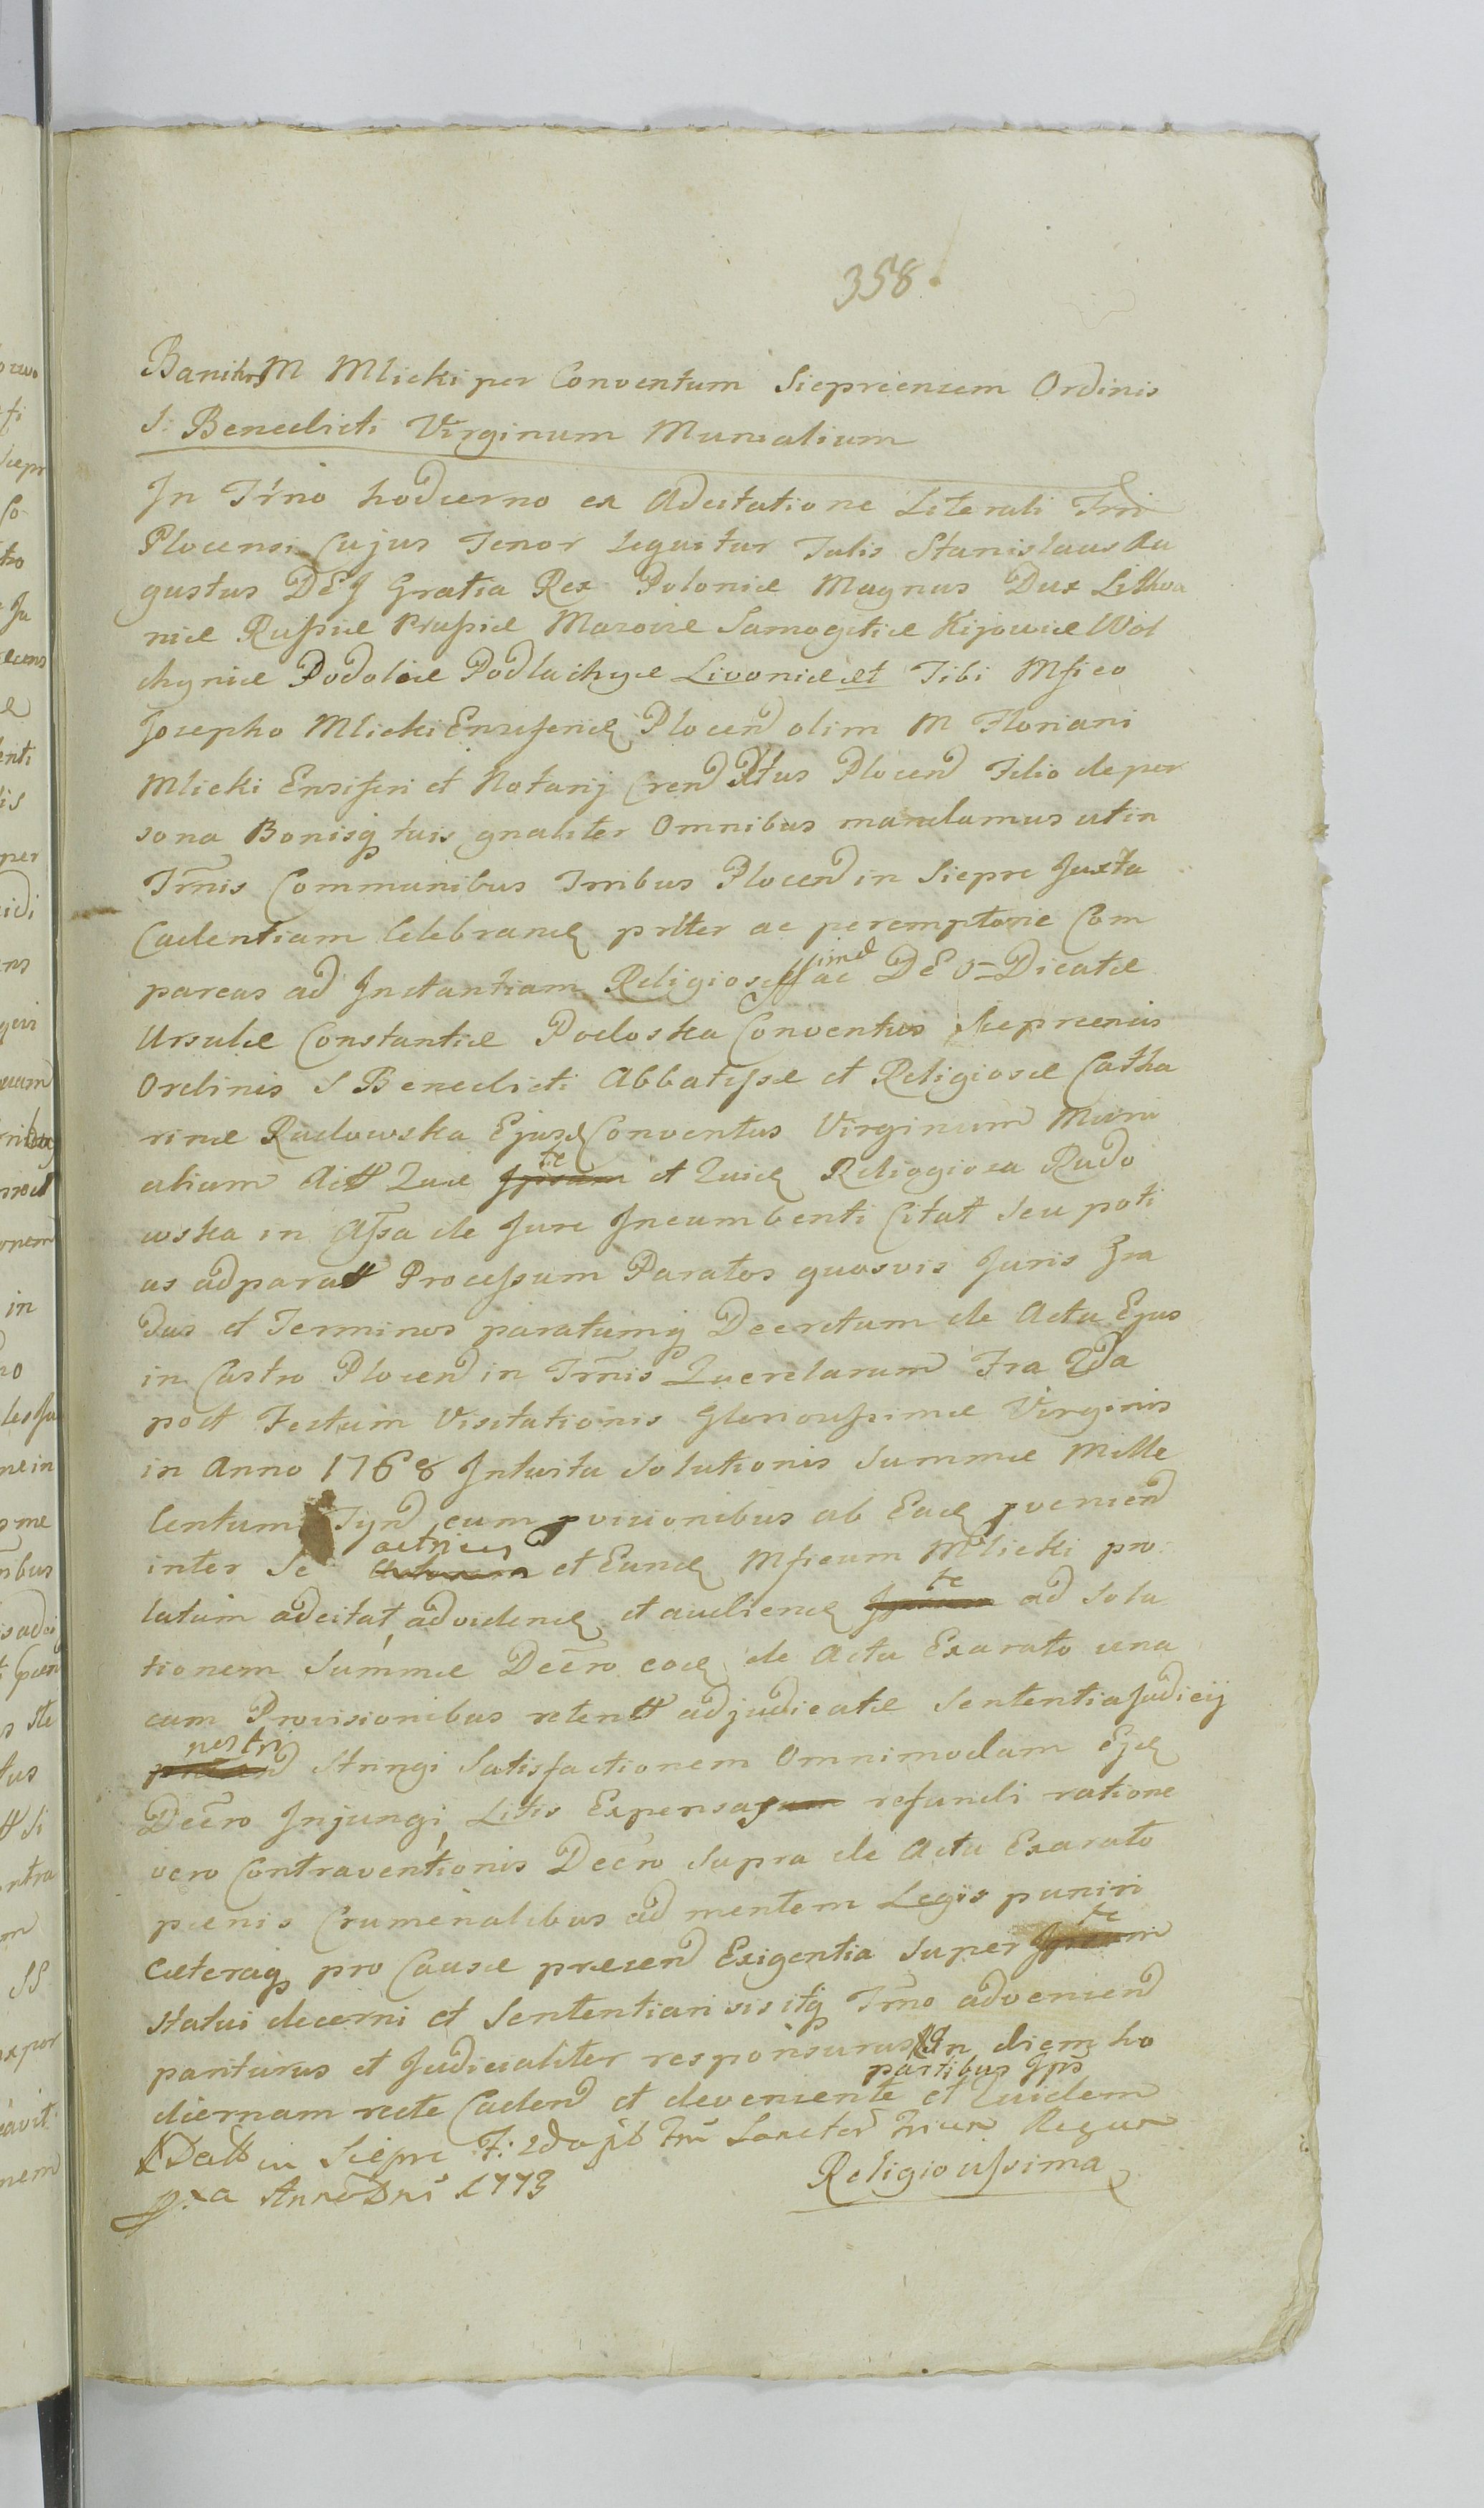 358.
M Mlicki per Conventum Sieprcensem Ordinis
S: Benedicti Virginum Munialium
In Tr̄no hodierno ex Adcitatione Literali Trri
Plocensi Cujus Tenor Sequitur Talis Stanislaus Au
gustus DEJ Gratia Rex Poloniæ Magnus Dux Lithva
niæ Rußiæ Prußiæ Mazoviæ Samogitiæ Kijoviæ Wol
chyniæ Podoliæ Podlachyæ Livoniæ et Tibi Mfico
Josepho Mlicki Ensifero Plocen olim M Floriani
Mlicki Ensiferi et Notarij Plocen Filio de per
sona Bonisq tuis gnaliter Omnibus mandamus ut in
Tr̄nis Communibus Trribus Plocen in Siepre Juxta
Cadentiam Celebrand prltter ac peremptorie Com
pareas ad Instantiam Religiosæ ac DEO=Dicatæ
Ursulæ Constantiæ Podoska Conventus Sieprcensis
Ordinis S Benedicti Abbatyssæ et Religiosæ Catha
rinæ Radowska Ejusd Conventus Virginum Muni
alium Act Quæ te et Quid Religgiosa Rado
wska in Aßa de Jure Incumbenti Citat Seu poti
us ad parat Proceßum Paratos quosvis Juris Gra
dus et Terminos paratumq Decretum de Actu Ejus
in Castro Plocen in Tr̄nis Querelarum Fra 2da
post Festum Visitationis Glorioußimæ Virginis
in Anno 1768 Intuitu Solutionis Summæ Mille
Centum Tyn cum pvisionibus ab Ead pvenien
inter Se actrices et Eund Mficum Mlicki pro
latum adcitat, ad vidend et audiend te ad Solu
tionem Summæ Decro eod de Actu Exarato una
cum Provisionibus retent adjudicatæ Sententia Judicij
nostri Stringi Satisfactionem Omnimodam Ejd
Decro Injungi Litis Expensas refundi ratione
vero Contraventionis Decro Supra de Actu Exarato
pœnis Crumenalibus ad mentem Legis puniri
Cæteraq pro Causæ præsen Exigentia Super te
statui decerni et Sententiari sis itq Tr̄no advenien
pariturus et Judicialiter responsurus In diem ho
diernam recte Caden et deveniente partibus Jps et Quidem
Datt in Siepre F: 2da pt Fm Sanctor Trium Regum
pxa Anno Dni 1773
Religioußima